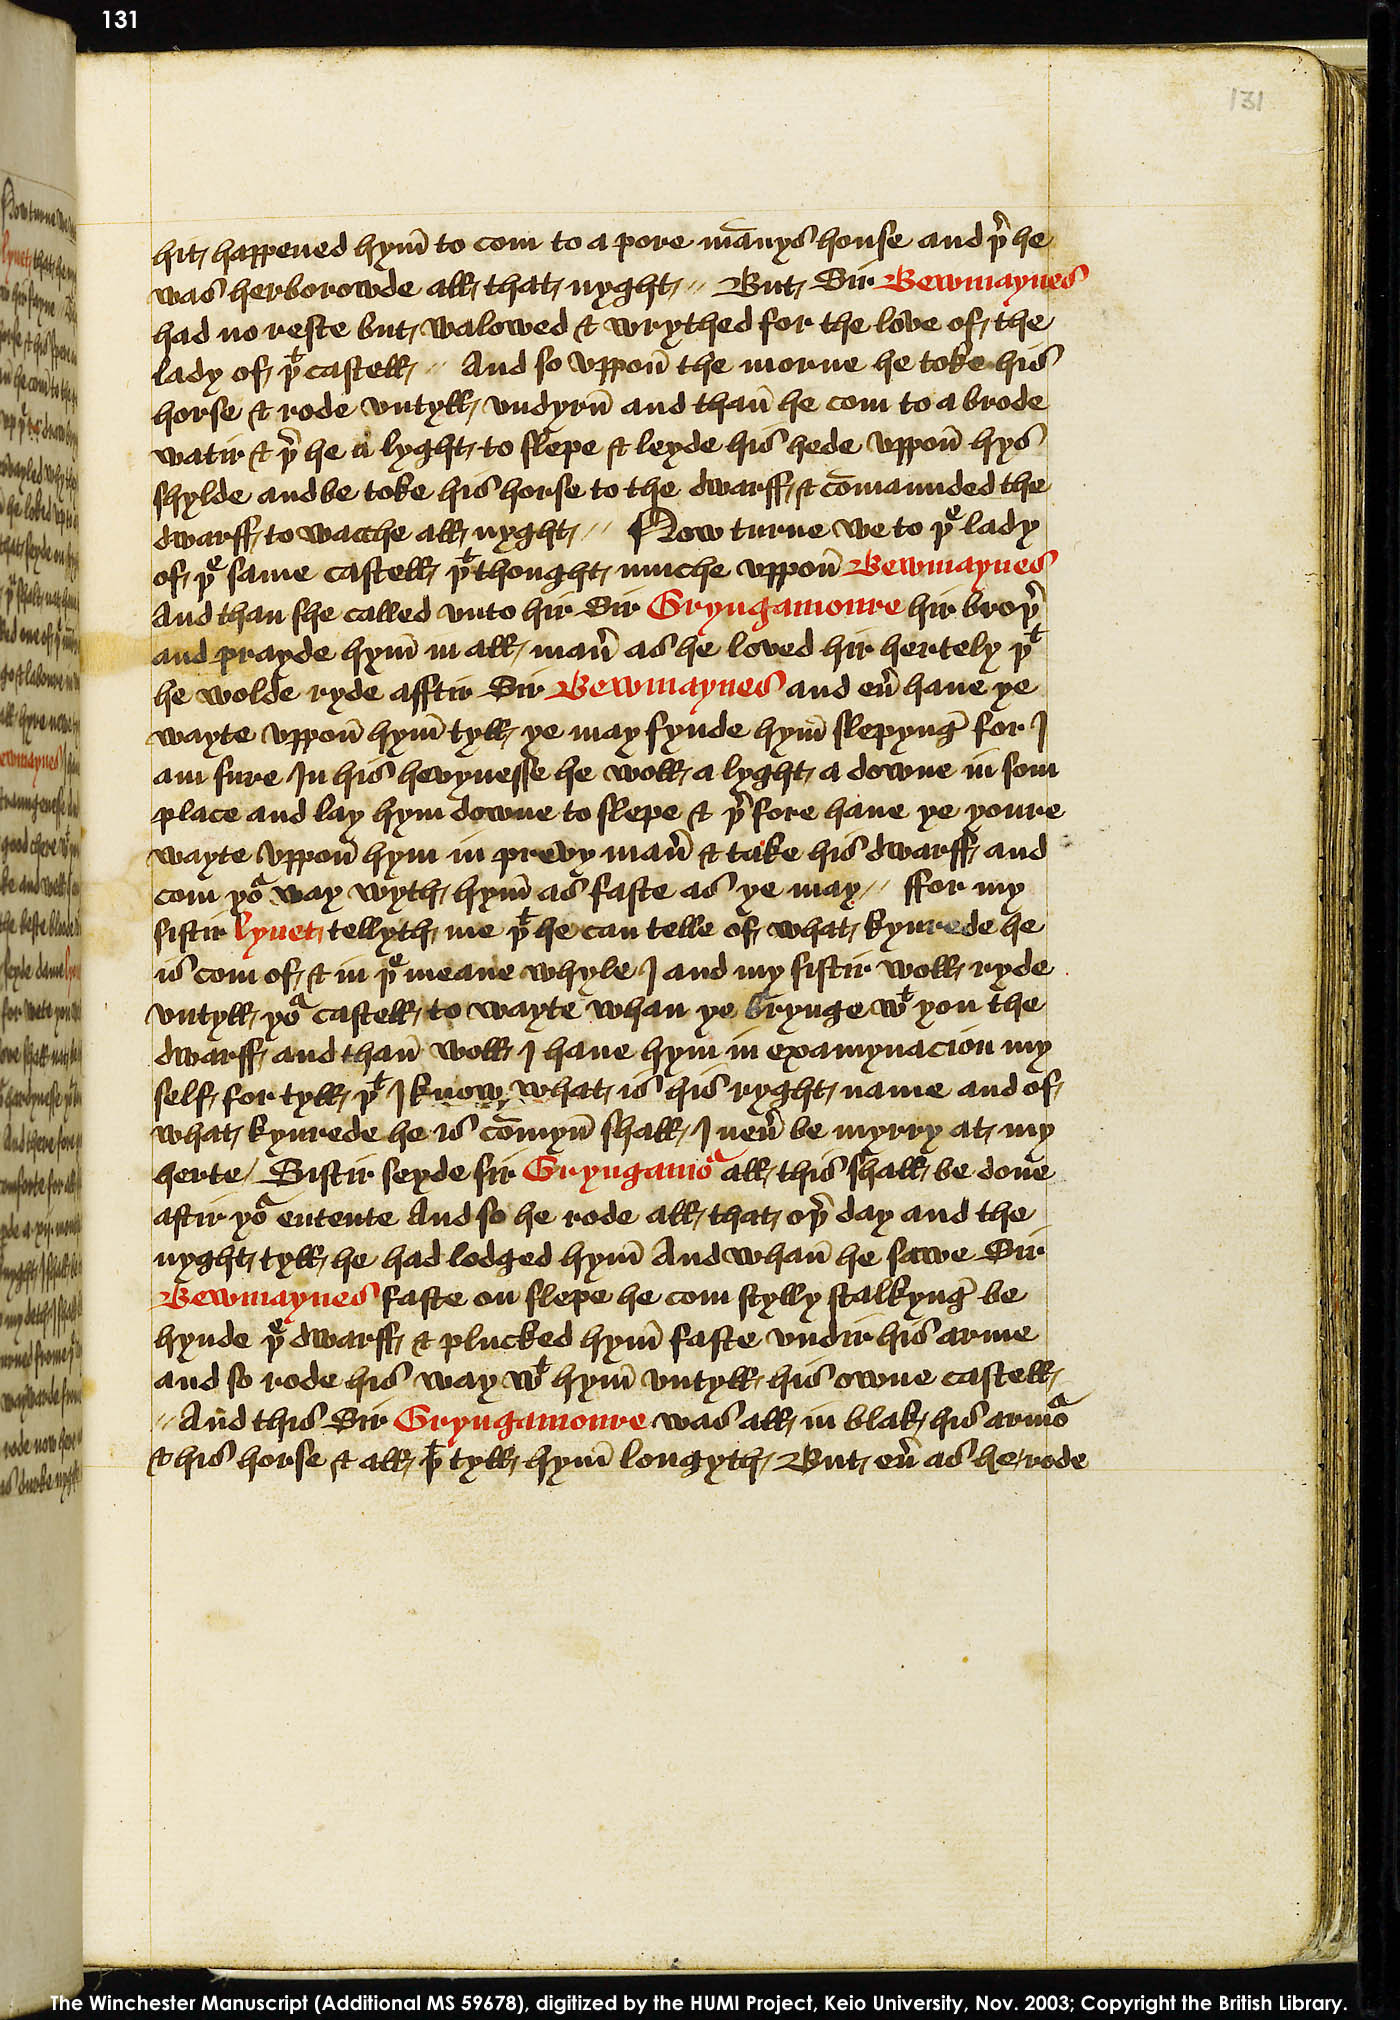 131
131
hit happened hym̄ to com to a pore mānys house and þr̄ he
was herborowde all that nyght // But Sir Bewmaynes
had no reste but walowed & wrythed for the love of the
lady of þͭ castell // And so vppon̄ the morne he toke his
horse & rode vntyll vndyrn̄ and than̄ he com to a brode
watir & þr̄ he a lyght to slepe & leyde his hede vppon̄ hys
shylde and be toke his horse to the dwarff & cōmaunded the
dwarff to wacche all nyght // Now turne we to þͤ lady
of þͤ same castell þͭ thought muche vppon̄ Bewmaynes
And than she called vnto hir Sir Gryngamoure hir broþr̄
and prayde hym̄ in all man̄ as he loved hir hertely þͭ
he wolde ryde afftir Sir Bewmaynes and eū haue ye
wayte vppon̄ hym̄ tyll ye may fynde hym̄ slepynḡ for I
am sure In his hevynesse he woll a lyght a downe in som
place and lay hym downe to slepe & þr̄ fore haue ye youre
wayte vppon̄ hym in prevy man̄ & take his dwarff and
com yoͬ way wyth hym̄ as faste as ye may // ffor my
sistir lynet tellyth me þͭ he can telle of what kynrede he
is com of & in þͤ meane whyle I and my sistir woll ryde
vntyll yoͬ castell to wayte whan ye brynge wͭ you the
dwarff and than̄ woll I haue hym in examynacion my
self for tyll þͭ I know what is his ryght name and of
what kynrede he is cōmyn̄ shall I neū be myrry at my
herte / Sistir seyde sir Gryngamoͬ all this shall be done
aftir yoͬ entente And so he rode all that oþr̄ day and the
nyght tyll he had lodged hym̄ And whan̄ he sawe Sir
Bewmaynes faste on slepe he com stylly stalkynḡ be
hynde þͤ dwarff & plucked hym̄ faste vndir his arme
and so rode his way wͭ hym̄ vntyll his owne castell
// And this Sir Gryngamoure was all in blak his armoͬ
& his horse & all þͭ tyll hym̄ longyth But eū as he rode
The Winchester Manuscript (Additional MS 59678), digitized by the HUMI Project, Keio University, Nov. 2003; Copyright the British Library.